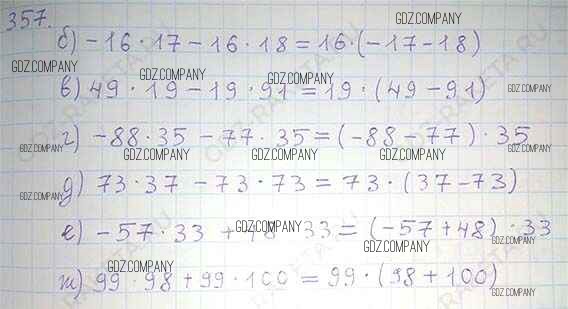 357.
б) -16 · 17 - 16 · 18 = 16 · (-17 - 18)
в) 49 · 19 - 19 · 91 = 19 · (49 - 91)
г) -88 · 35 - 77 · 35 = (-88 - 77) · 35
д) 73 · 37 - 73 · 73 = 73 · (37 - 73)
е) -57 · 33 + 48 · 33 = (-57 + 48) · 33
ж) 99 · 98 + 99 · 100 = 99 · (98 + 100)
GDZ.COMPANY
GDZ.COMPANY
GDZ.COMPANY
GDZ.COMPANY
GDZ.COMPANY
GDZ.COMPANY
GDZ.COMPANY
GDZ.COMPANY
GDZ.COMPANY
GDZ.COMPANY
GDZ.COMPANY
GDZ.COMPANY
GDZ.COMPANY
GDZ.COMPANY
GDZ.COMPANY
GDZ.COMPANY